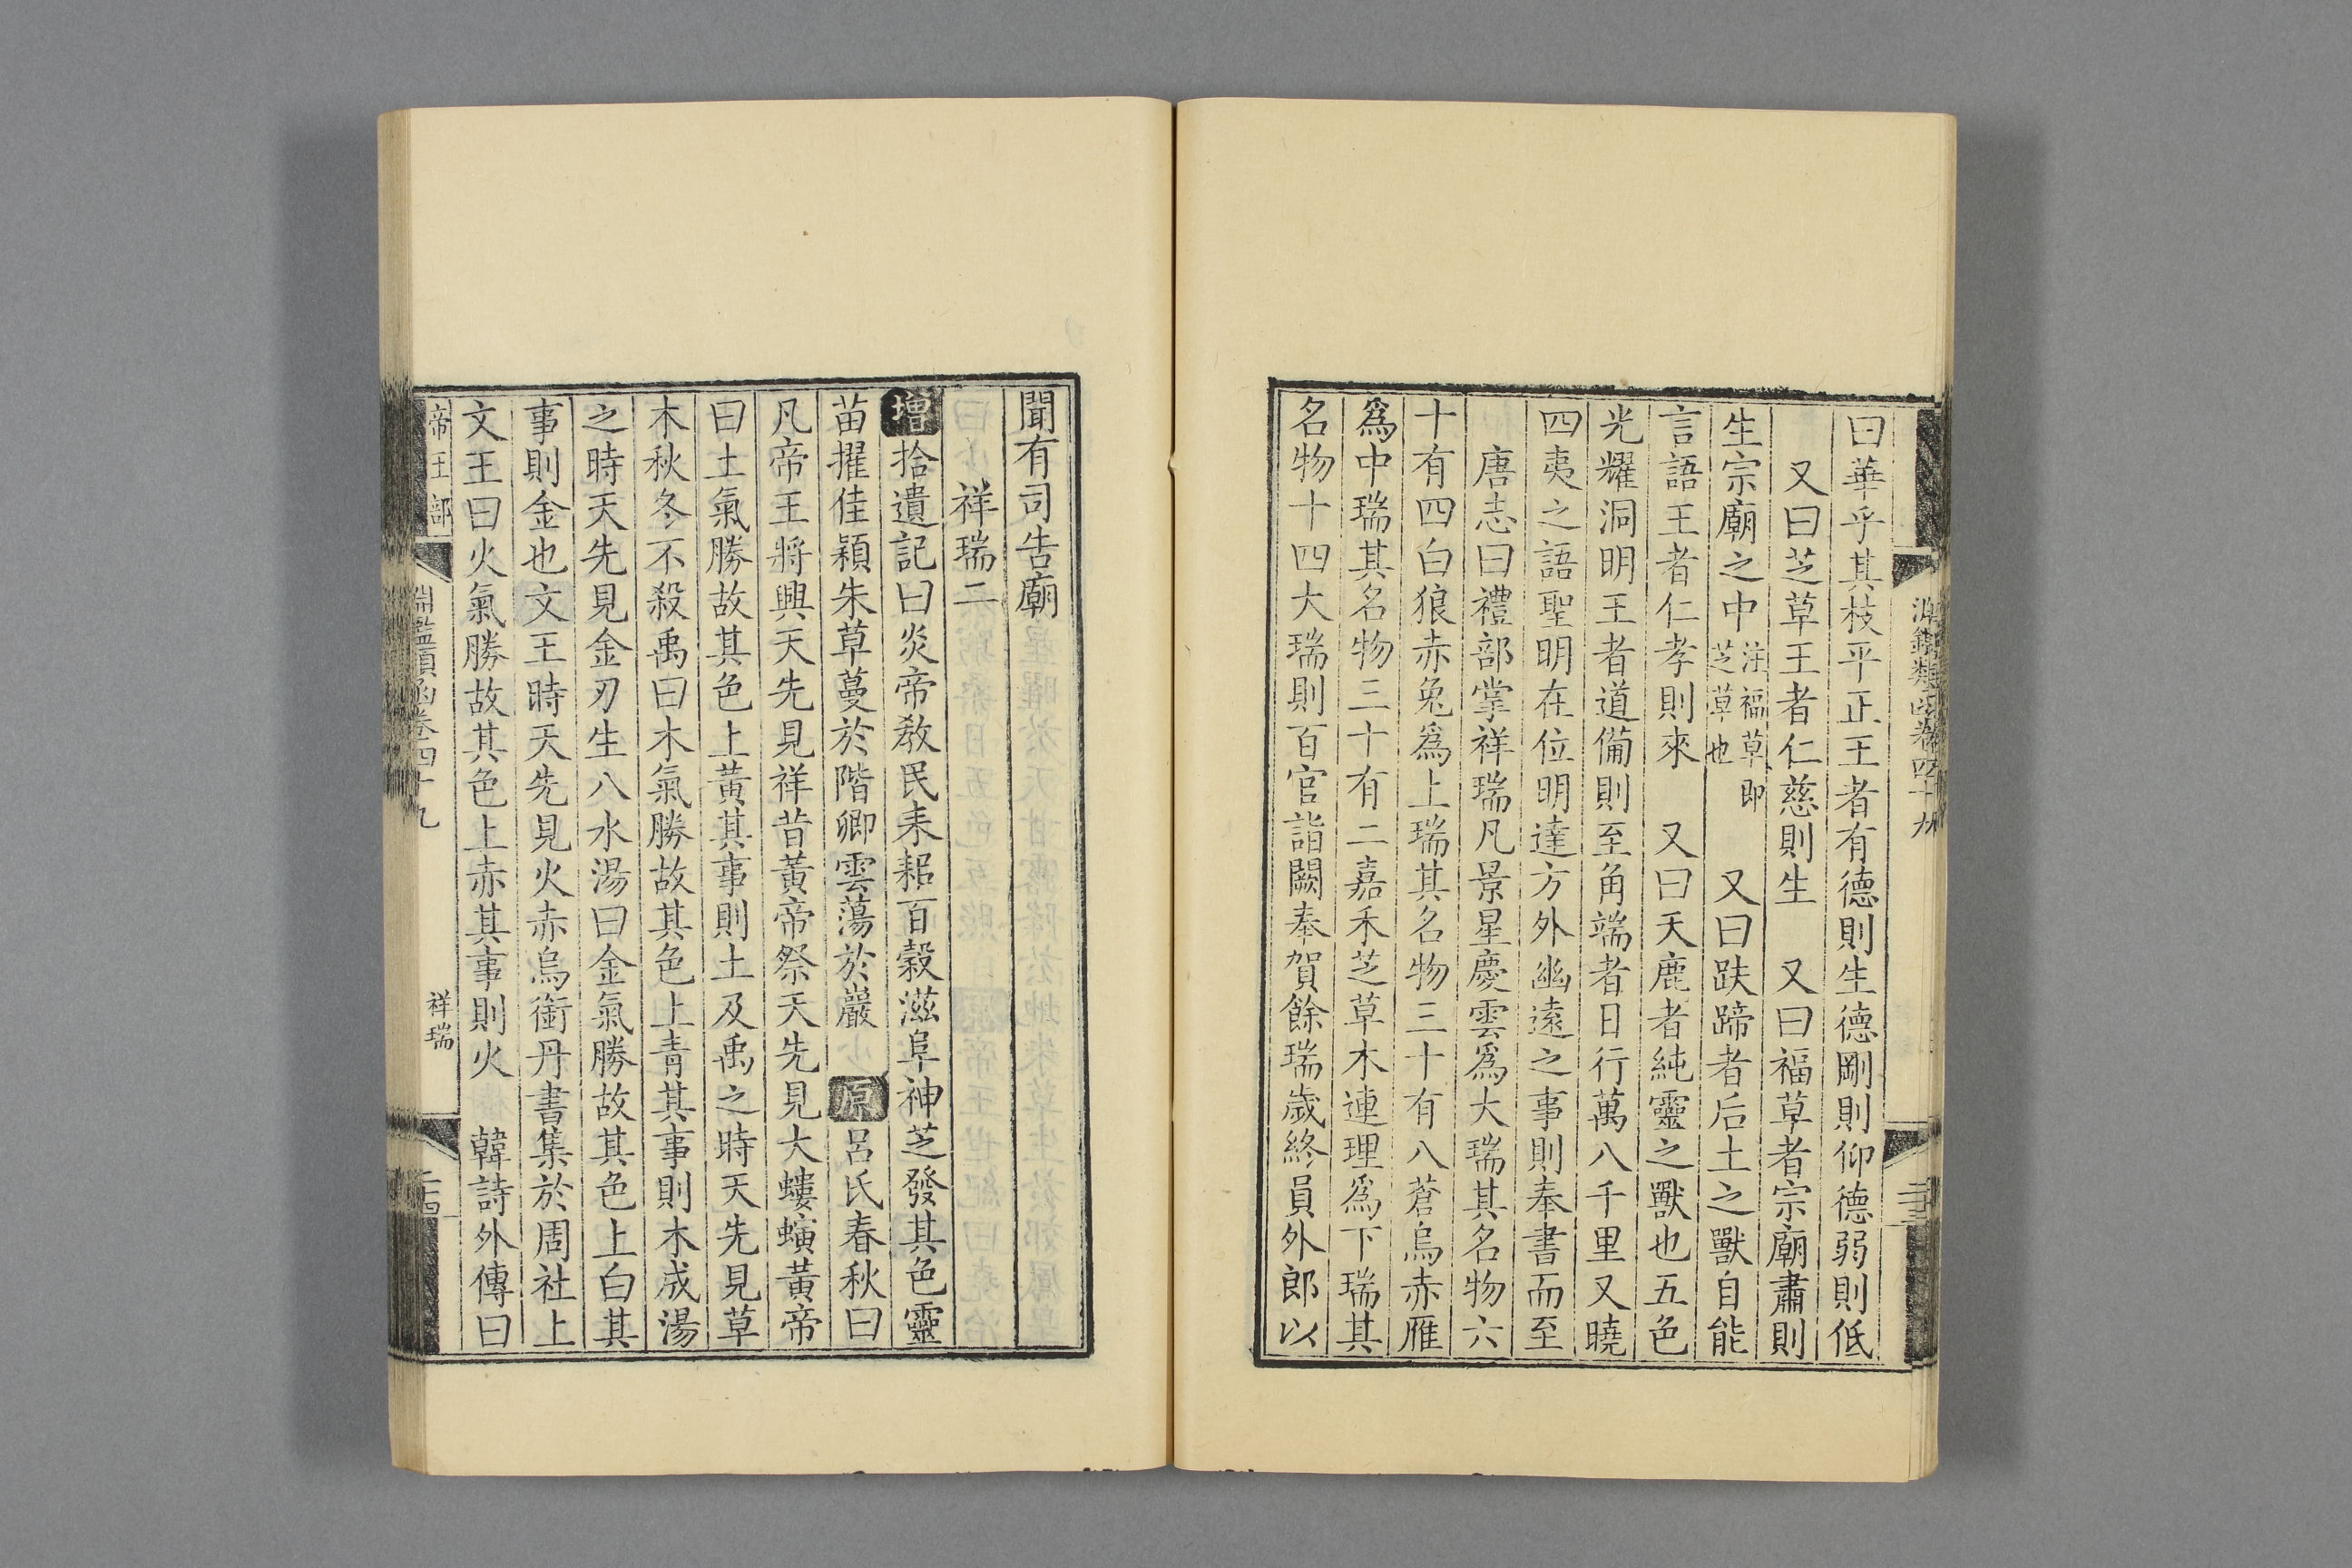 淵鑑類函卷四十九
曰華乎其枝平正王者有德則生德剛則仰德弱則低
又曰芝草王者仁慈則生　又曰福草者宗廟肅則
生宗廟之中注福草即芝草也　又曰趹蹄者后土之獸自能
言語王者仁孝則來　又曰天鹿者純靈之獸也五色
光耀洞明王者道備則至角端者日行萬八千里又曉
四夷之語聖明在位明達方外幽遠之事則奉書而至
唐志曰禮部掌祥瑞凡景星慶雲爲大瑞其名物六
十有四白狼赤兔爲上瑞其名物三十有八蒼烏赤雁
爲中瑞其名物三十有二嘉禾芝草木連理爲下瑞其
名物十四大瑞則百官詣闕奉賀餘瑞歲終員外郎以
聞有司告廟
祥瑞二
增拾遺記曰炎帝敎民耒耜百穀滋阜神芝發其色靈
苗擢佳穎朱草蔓於階卿雲蕩於巖　原呂氏春秋曰
凡帝王將興天先見祥昔黃帝祭天先見大螻螾黃帝
曰土氣勝故其色上黃其事則土及禹之時天先見草
木秋冬不殺禹曰木氣勝故其色上青其事則木成湯
之時天先見金刃生八水湯曰金氣勝故其色上白其
事則金也文王時天先見火赤烏銜丹書集於周社上
文王曰火氣勝故其色上赤其事則火　韓詩外傳曰
帝王部　淵鑑類函卷四十九　祥瑞